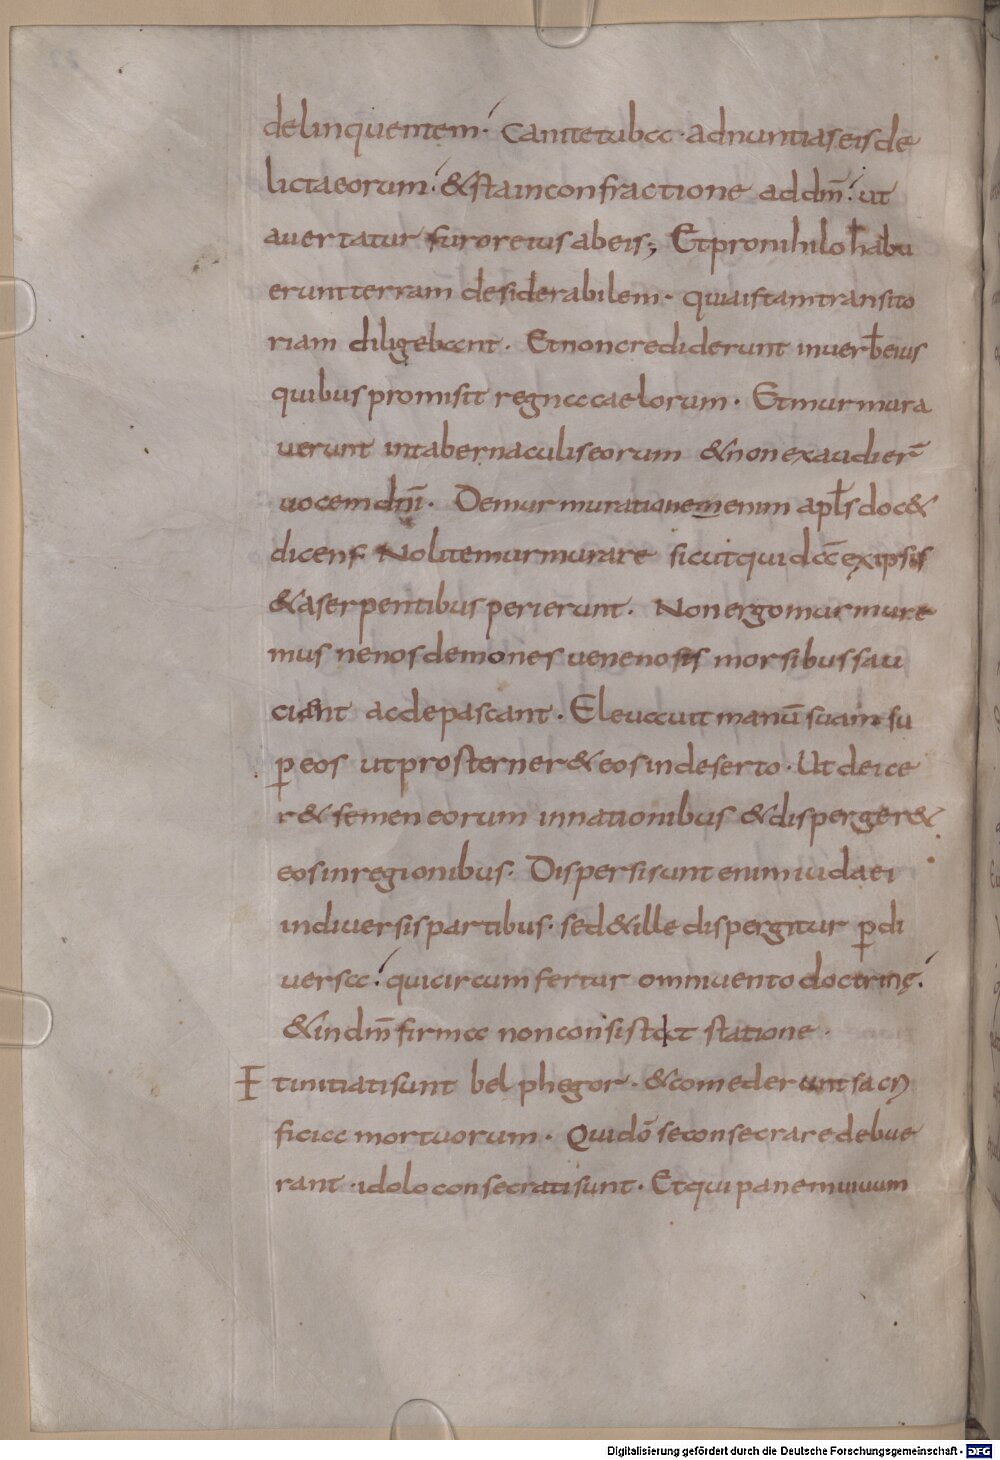 delinquentem. Canite tuba. adnuntias eis de
licta eorum. & sta in confractione ad dm̄. ut
auertatur furor eius ab eis; Et pro nihilo hab̄u
erunt terram desiderabilem. quia istam transito
riam diligebant. Et non crediderunt in uerb̄ eius
quibus promisit regna caelorum. Et murmura
uerunt in tabernaculis eorum & non exaudier̄
uocem dn̄i. De murmurationem enim apl̄s doc&
dicens Nolite murmurare sicut qui dā ex ipsis
& a serpentibus perierunt. Non ergo murmure
mus ne nos demones uenenosis morsibus sau
ciant ac depascant. Eleuauit manū suam su
p̄ eos ut prosterner& eos in deserto. Ut deice
r& semen eorum in nationibus & disperger&
eos in regionibus. Dispersi sunt enim iudaei
in diuersis partibus. sed & ille dispergitur p̄ di
uersa. qui circumfertur omni uento doctrinę.
& in dm̄ firma non consistat statione.
Et initiati sunt belphegor. & comederunt sacri
ficia mortuorum. Qui dō se consecrare debue
rant. idolo consecrati sunt. Et qui panem uiuum
Digitalisierung gefördert durch die Deutsche Forschungsgemeinschaft - DFG